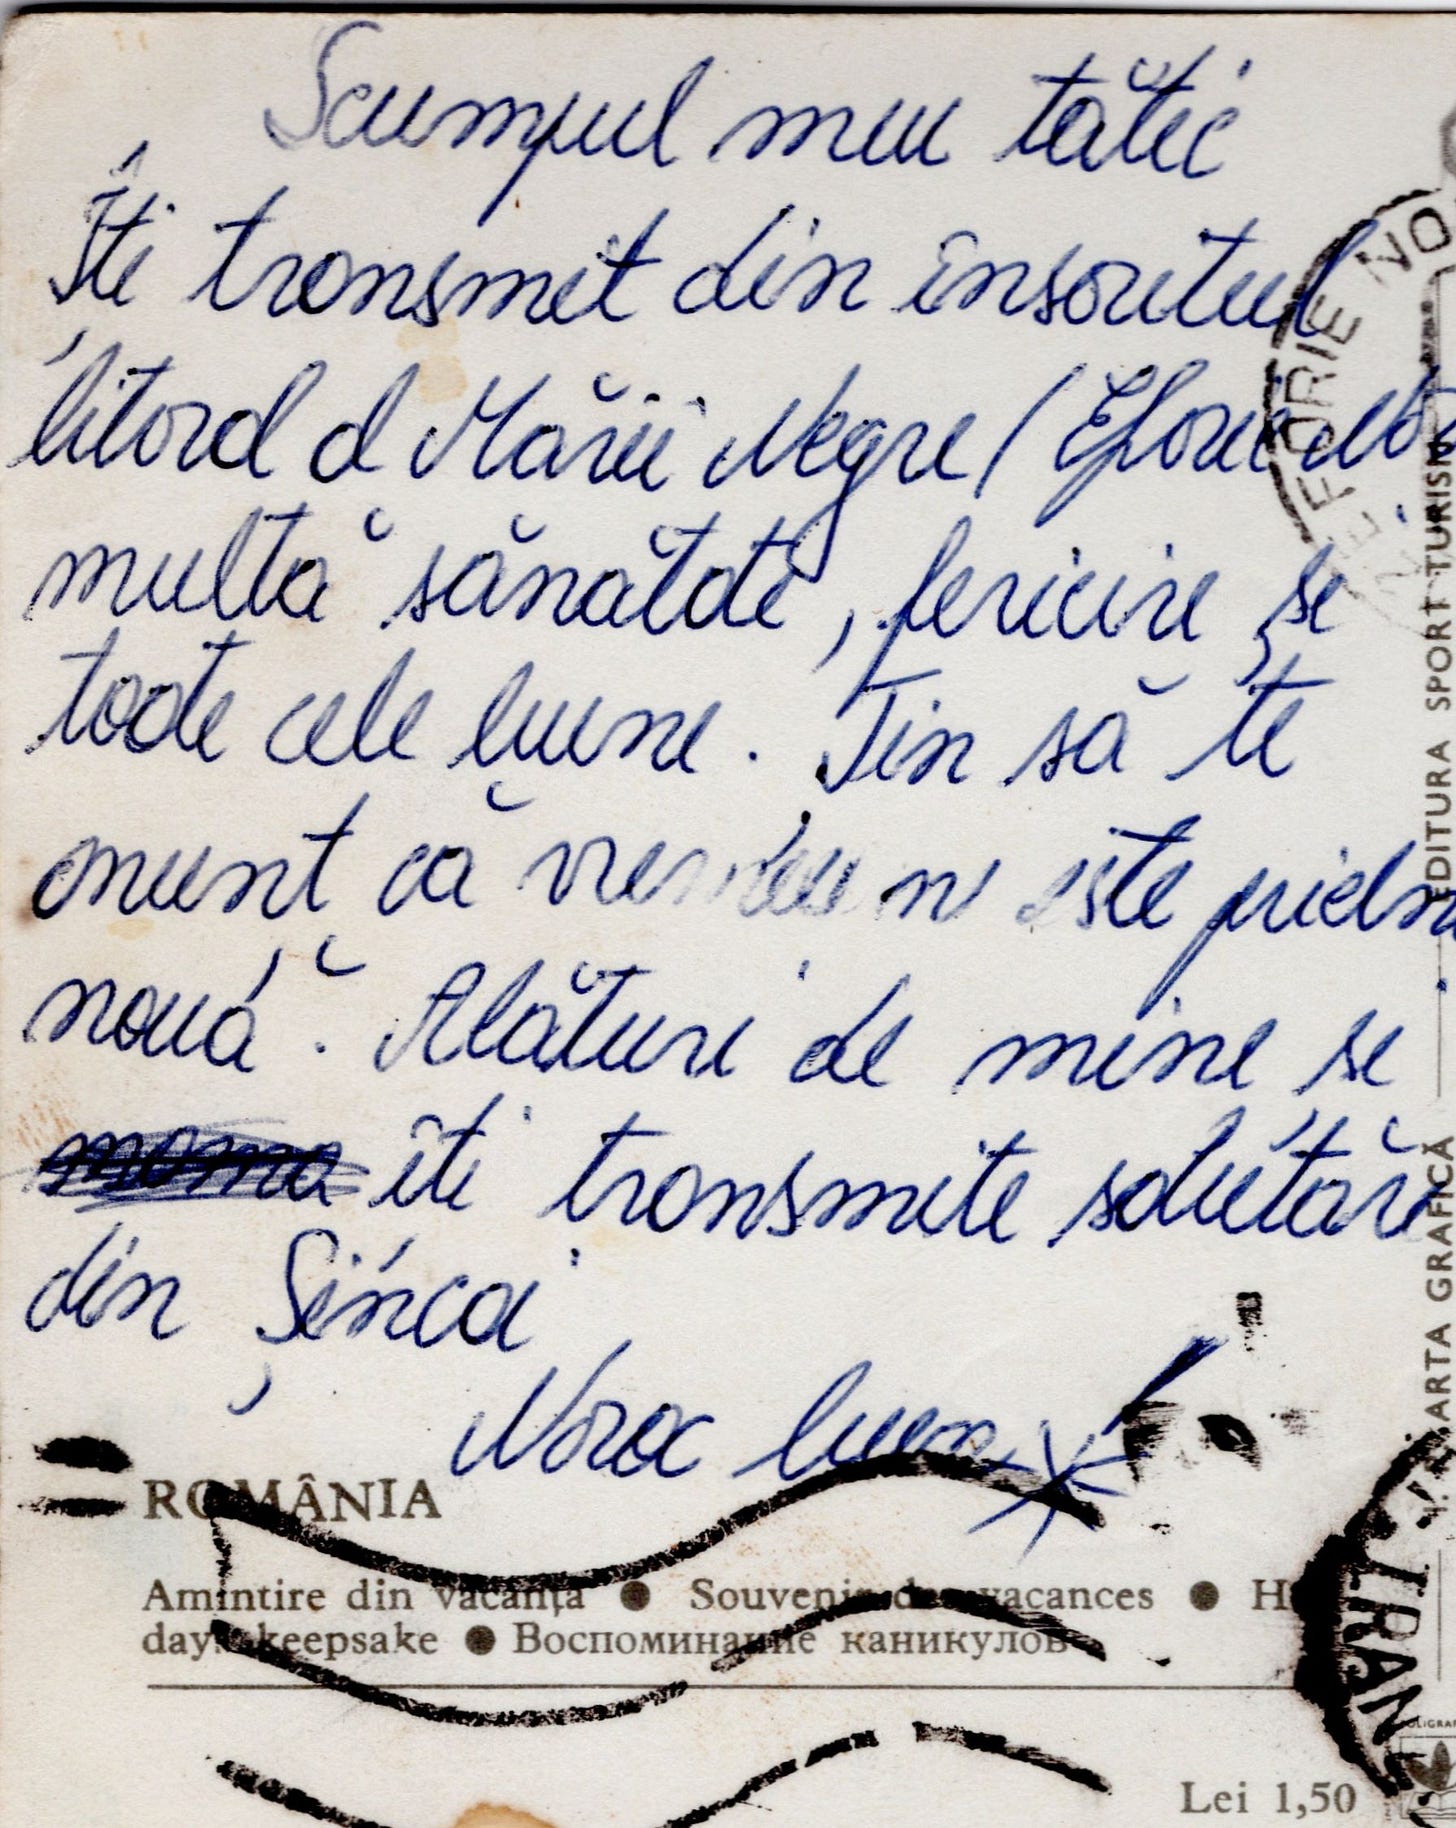 Scumpul meu tătic
Îți transmit din însoritul
litoral al Mării Negre (Eforie No
multă sănătate, fericire și
toate cele bune. Țin să te
anunț că vremea ne este prielni
nouă. Alături de mine și
mama îți transmite salutări
din Șincai
Noroc bun
ROMÂNIA
Amintire din vacanța ● Souvenir des vacances ● H
day keepsake ● Воспоминание каникулов
Lei 1,50
EFORIE NO
EDITURA SPORT TURISM
ARTA GRAFICĂ
TRAN